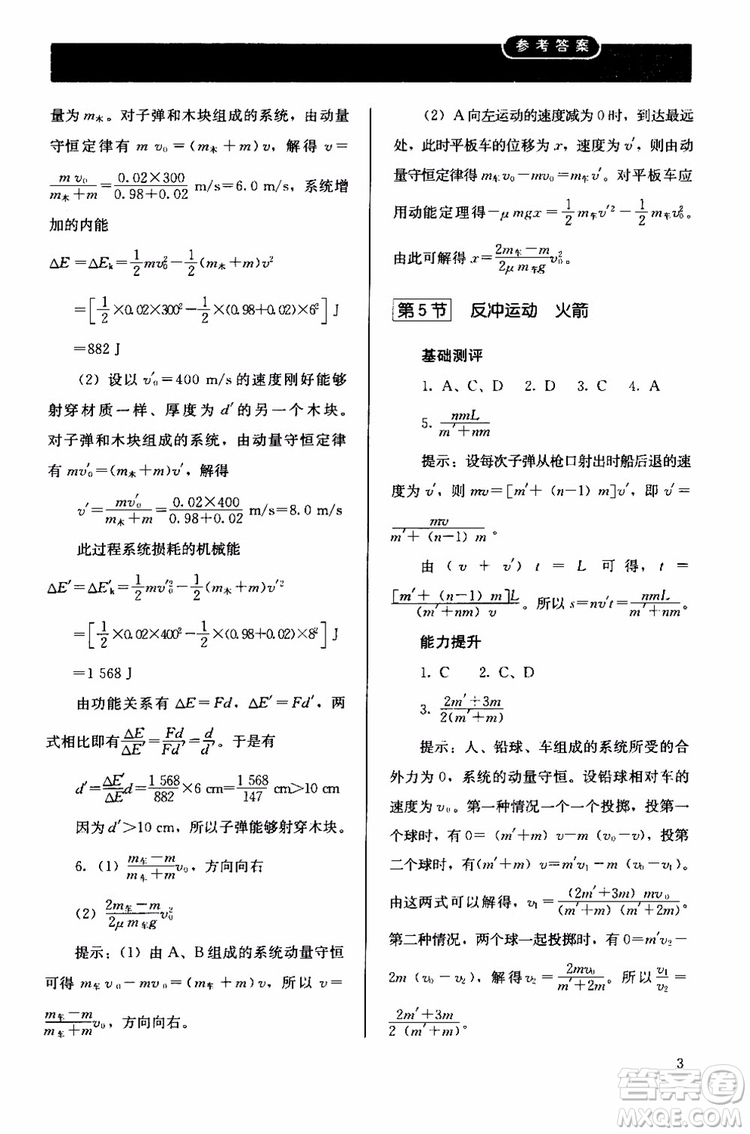 参考答案
量为 m木。对子弹和木块组成的系统，由动量
守恒定律有 m v₀＝(m木＋m)v，解得 v＝
mv₀/(m木＋m)＝(0.02×300)/(0.98＋0.02) m/s＝6.0 m/s，系统增
加的内能
ΔE＝ΔEₖ＝1/2 mv₀²－1/2(m木＋m)v²
＝[1/2×0.02×300²－1/2×(0.98＋0.02)×6²] J
＝882 J
(2) 设以 v₀′＝400 m/s 的速度刚好能够
射穿材质一样、厚度为 d′的另一个木块。
对子弹和木块组成的系统，由动量守恒定律
有 mv₀′＝(m木＋m)v′，解得
v′＝mv₀′/(m木＋m)＝(0.02×400)/(0.98＋0.02) m/s＝8.0 m/s
此过程系统损耗的机械能
ΔE′＝ΔEₖ′＝1/2 mv₀′²－1/2(m木＋m)v′²
＝[1/2×0.02×400²－1/2×(0.98＋0.02)×8²] J
＝1 568 J
由功能关系有 ΔE＝Fd，ΔE′＝Fd′，两
式相比即有 ΔE/ΔE′＝Fd/Fd′＝d/d′。于是有
d′＝(ΔE′/ΔE)d＝1 568/882×6 cm＝1 568/147 cm＞10 cm
因为 d′＞10 cm，所以子弹能够射穿木块。
6. (1) (m车－m)/(m车＋m) v₀，方向向右
(2) (2m车－m)/(2μm车g) v₀²
提示：(1) 由 A、B组成的系统动量守恒
可得 m车 v₀－mv₀＝(m车＋m)v，解得 v＝
(m车－m)/(m车＋m) v₀，方向向右。
(2) A 向左运动的速度减为 0 时，到达最远
处，此时平板车的位移为 x，速度为 v′，由动
量守恒定律得 m车v₀－mv₀＝m车v′。对平板车应
用动能定理得－μmgx＝1/2 m车v′²－1/2 m车v₀²，
由此可解得，x＝(2m车－m)/(2μm车g) v₀²
第 5 节 反冲运动 火箭
基础测评
1. A、C、D 2. D 3. C 4. A
5. nmL/(m′＋nm)
提示：设每次子弹从枪口射出时船后退的速
度为 v′，则 mv＝[m′＋(n－1)m]v′，即 v′＝
mv/(m′＋(n－1)m)。
由 (v＋v′) t ＝ L 可得，t ＝
[m′＋(n－1)m]L/((m′＋nm)v)。所以 s＝nv′t＝nmL/(m′＋nm)。
能力提升
1. C 2. C、D
3. (2m′＋3m)/(2(m′＋m))
提示：人、铅球、车组成的系统所受的合
外力为 0，系统的动量守恒。设铅球相对车的
速度为 v₀。第一种情况一个一个投掷，投第一
个球时，有 0＝(m′＋m)v－m(v₀－v)，投第
二个球时，有 (m′＋m)v＝m′v₁－m(v₀－v₁)。
由这两式可以解得，v₁＝(2m′＋3m)mv₀/((m′＋m)(m′＋2m))。
第二种情况，两个球一起投掷时有 0＝m′v₂－
2m(v₀－v₂)，解得 v₂＝2mv₀/(m′＋2m)。所以 v₁/v₂＝
(2m′＋3m)/(2(m′＋m))。
3
答案圈